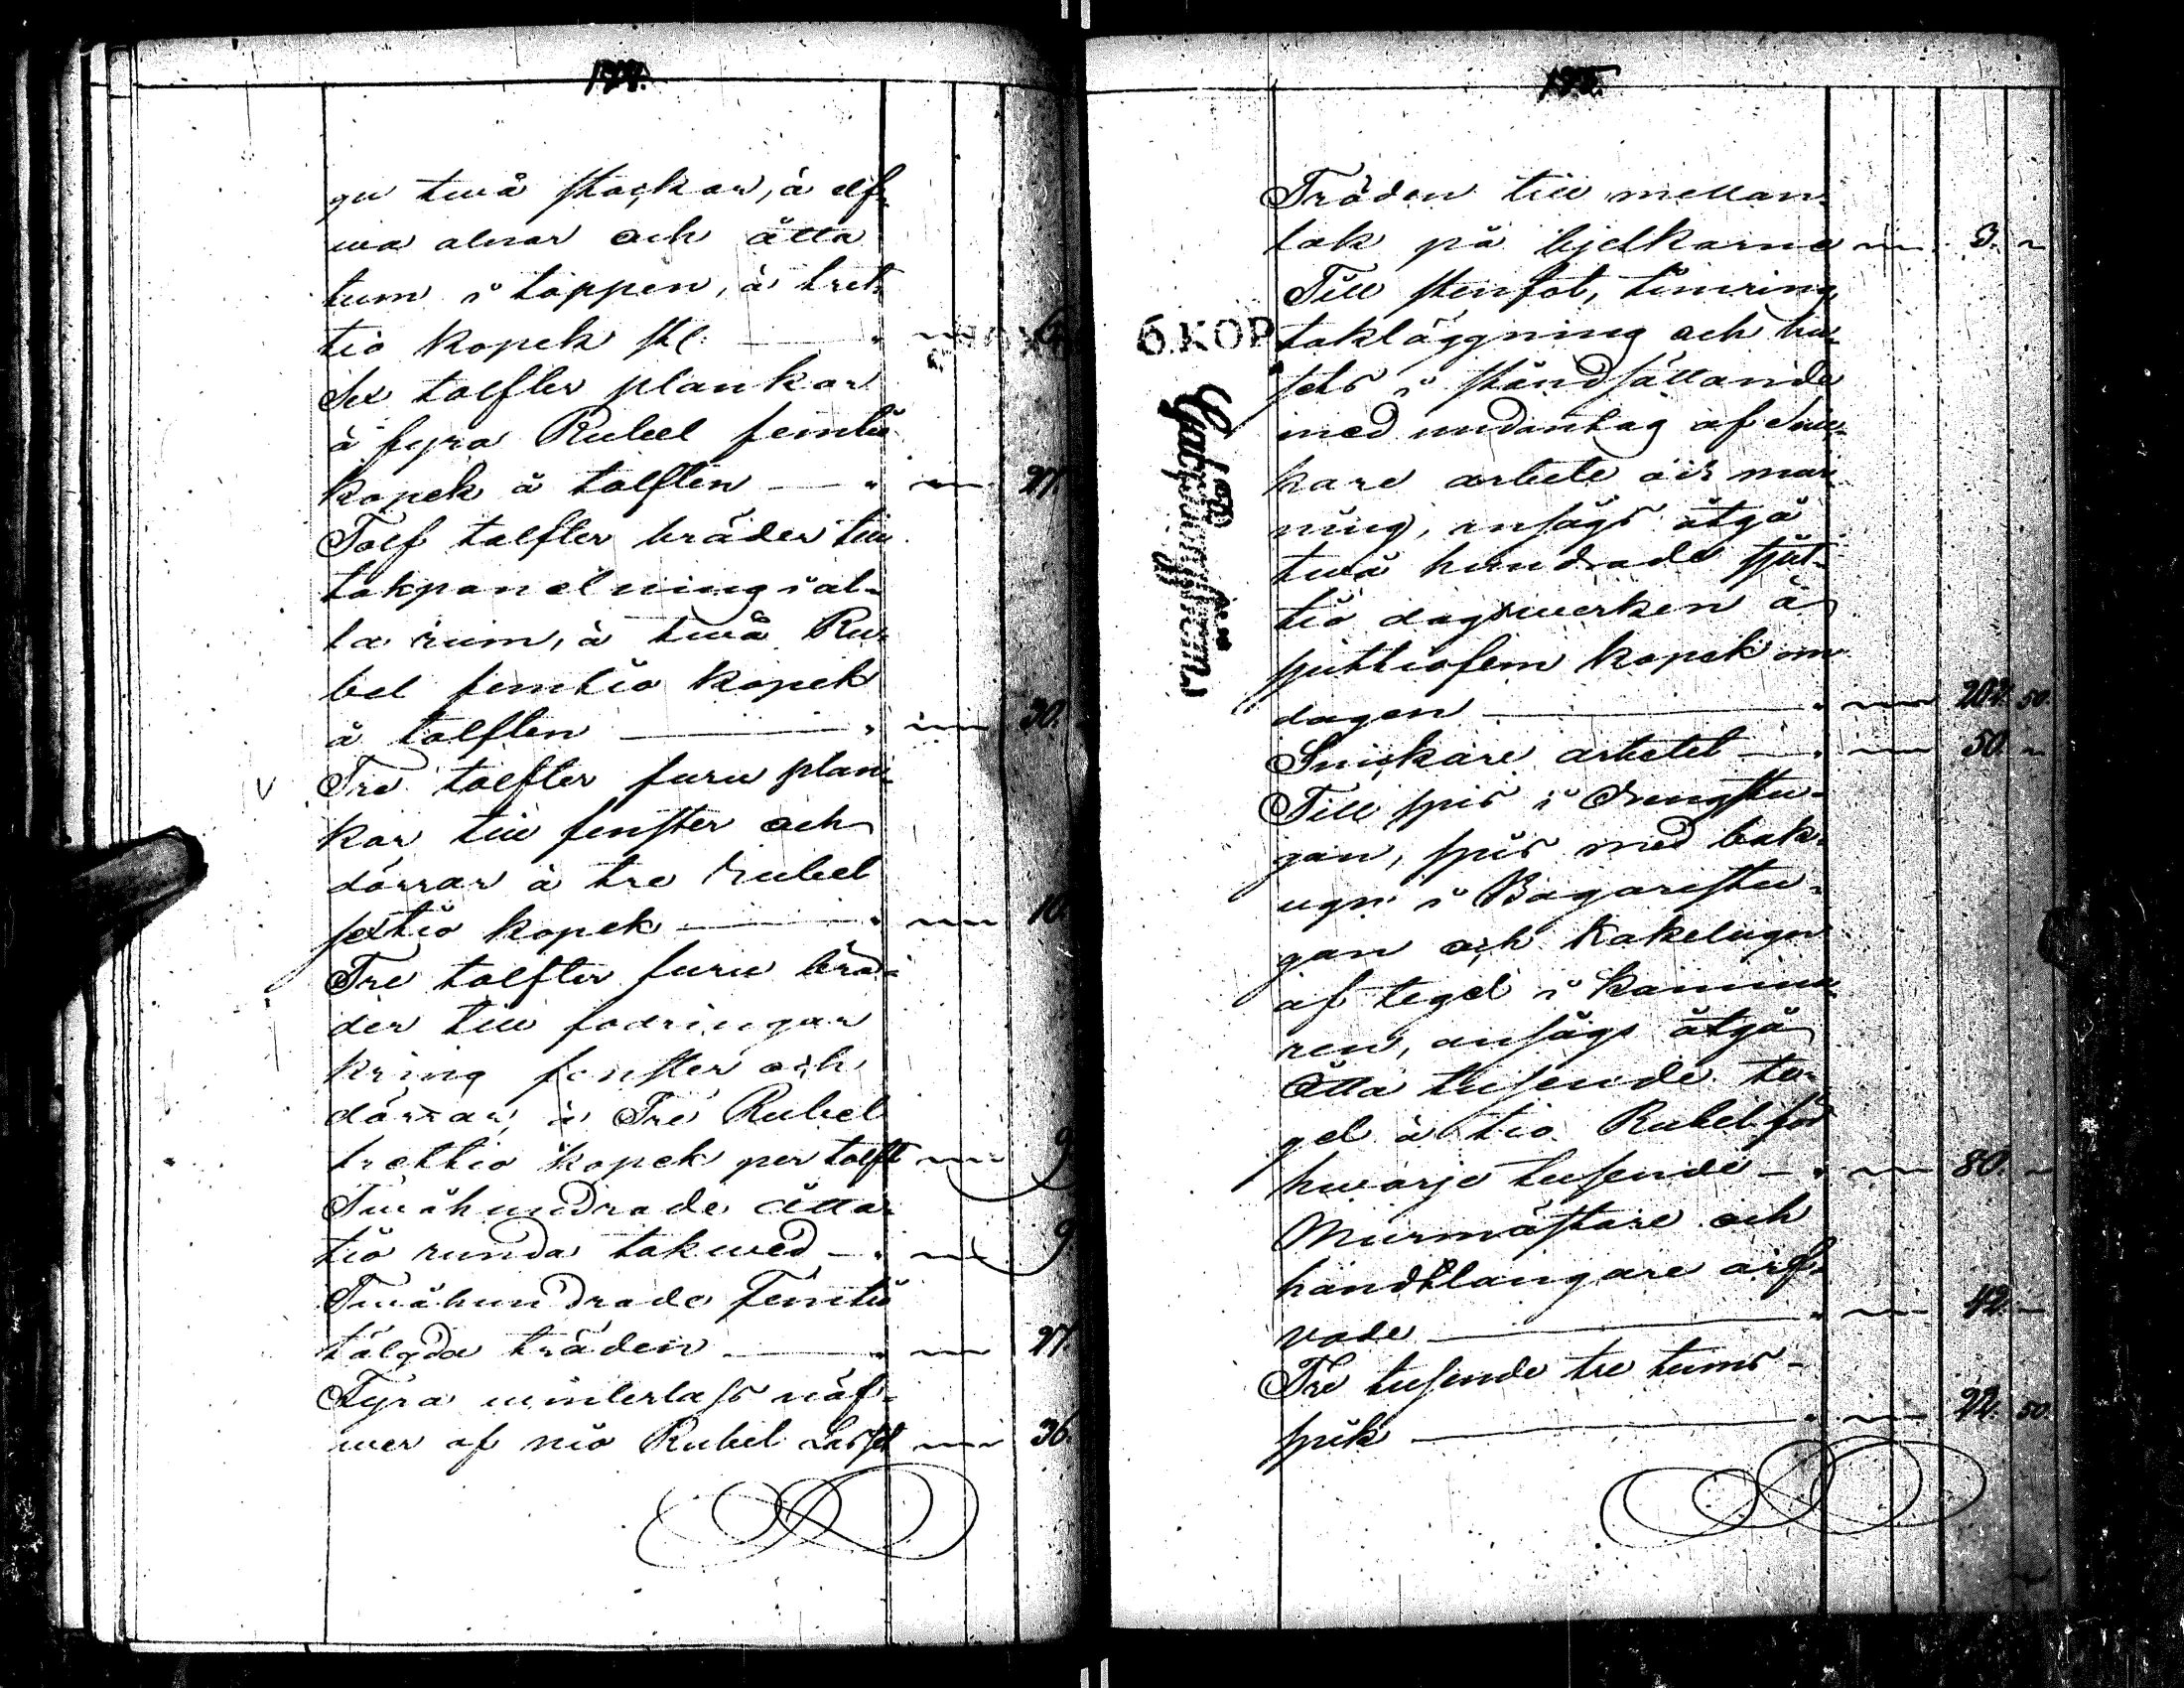 gu twå stockar, à elf-
wa alnar och åtta
tum i toppen, à tret-
tio kopek st:
Sex tolfter plankar
à fyra Rubel femtio
kopek à tolften — " — 27.
Tolf tolfter bräder till
takpanelning i al-
la rum, à twå Ru-
bel femtio kopek
à tolften — " — 30.
Tre tolfter furu plan-
kor till fenster och
dörrar à tre rubel
sextio kopek — " — 10.
Tre tolfter furu brä-
der till fodringar
kring fenster och
dörrar, à Tre Rubel
trettio kopek per tolft — 9
Twåhundrade åtta-
tio runda takwed — " — 9
Twåhundrade Femtio
tälgda träden — " — 27.
Fyra winterlass näf-
wer af nio Rubel Lasset — 36.
175.
6.KOP
Träden till mellan-
tak på bjelkarne — 3. —
Till stenfot, timring,
takläggning och hu-
sets i ståndsättande
med undantag af Snic-
kare arbete och mur-
ning, ansågs åtgå
twå hundrade sjut-
tio dagswerken à
sjuttiofem kopek om
dagen — " — 202. 50.
Snickare arbetet — " — 50. —
Till spis i Drengstu-
gan, spis med bak-
ugn i Bagarestu-
gan och Kakelugn
af tegel i kamma-
ren, ansågs åtgå
Åtta tusende te-
gel à tio Rubel för
hwarje tusende — " — 80. —
Murmästare och
handtlangare arf-
vode — " — 42. —
Tre tusende tre tums-
spik — " — 22. 50.